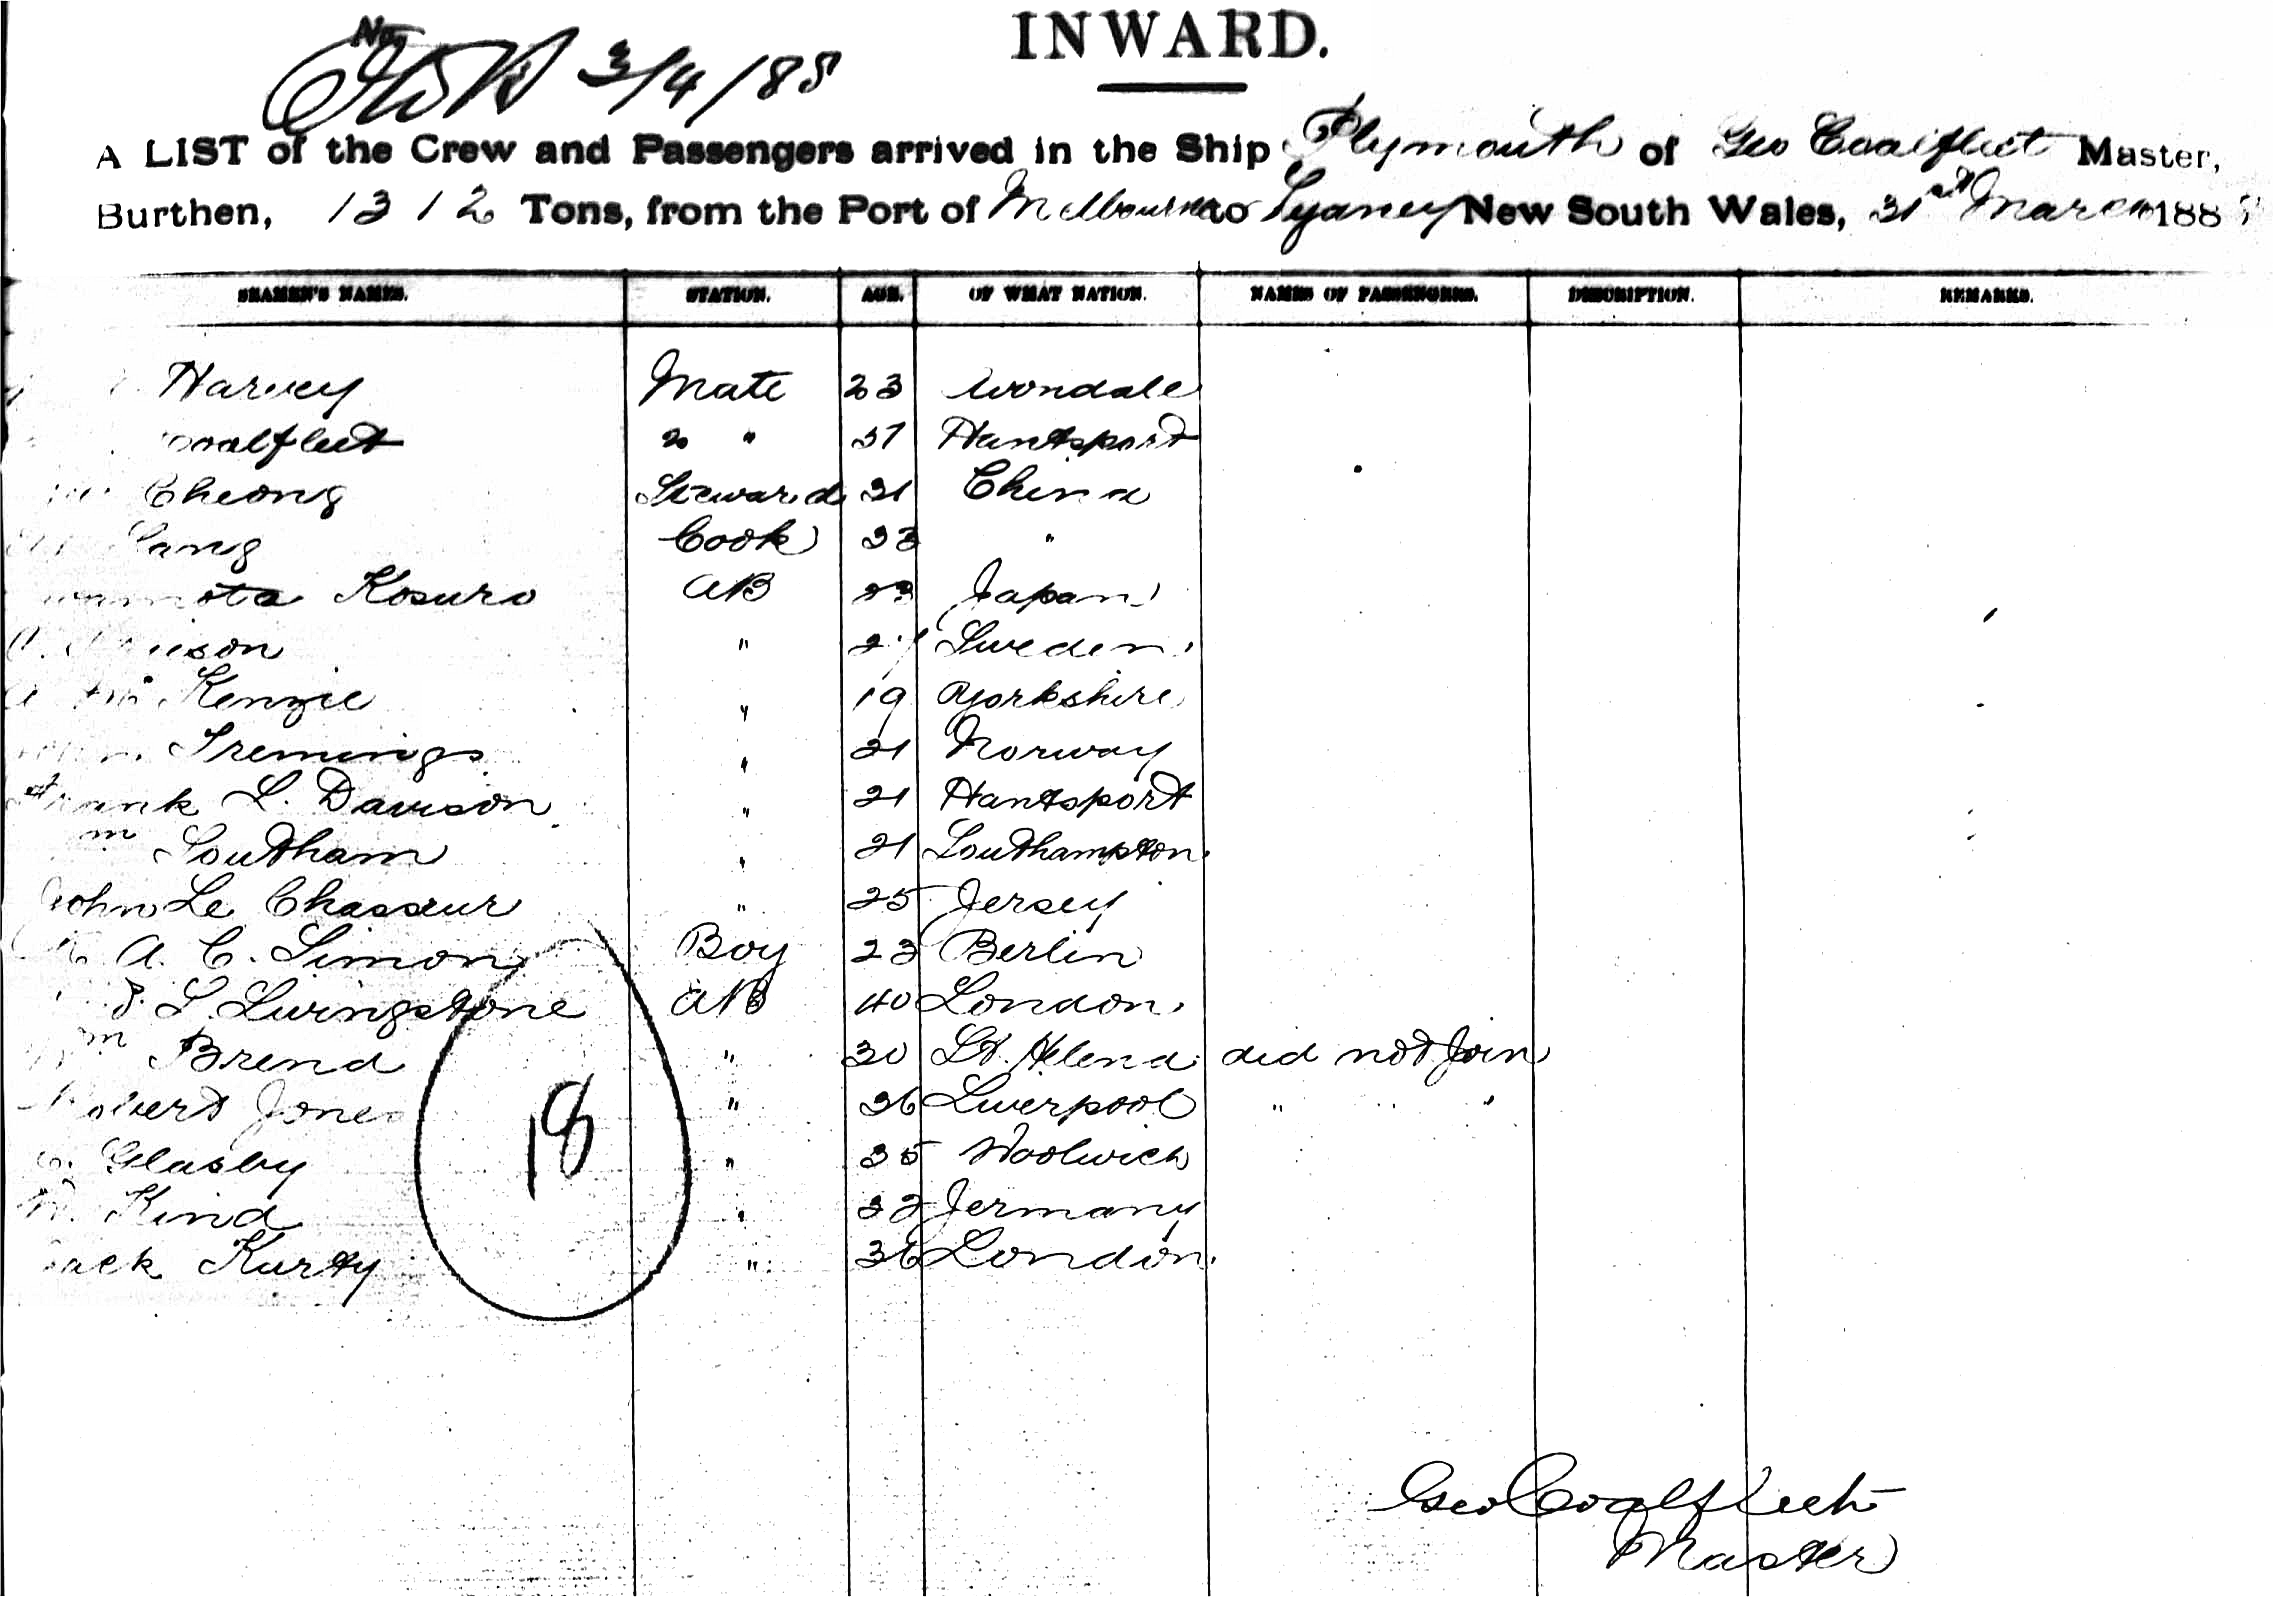 INWARD.
No.
3/4/88
A LIST of the Crew and Passengers arrived in the Ship Plymouth of Geo Coalfleet Master,
Burthen, 1312 Tons, from the Port of Melbourne to Sydney New South Wales, 31st March 188
SEAMEN'S NAMES. STATION. AGE. OF WHAT NATION. NAMES OF PASSENGERS. DESCRIPTION. REMARKS.
Harvey Mate 23 Avondale
Coalfleet 2 " Hantsport
Cheong Steward 31 China
Cook "
Kosuro AB Japan
" Sweden
Kenzie " 19 Yorkshire
" 21 Norway
Frank L. Davison " 21 Hantsport
Southam " 21 Southampton
John Le Chasseur " 25 Jersey
A. C. Simon Boy 23 Berlin
L. Livingstone AB 40 London
Wm Brend " 30 St. Helena did not Join
Robert Jones " 26 Liverpool " " "
Glasby " 35 Woolwich
Kind " Jermany
Jack Kurty " 36 London
18
Geo Coalfleet
Master